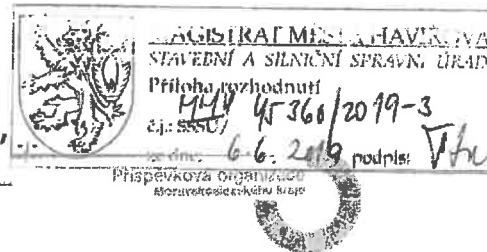 MAGISTRÁT MĚSTA HAVÍŘOVA
STAVEBNÍ A SILNIČNÍ SPRÁVNÍ ÚŘAD
Příloha rozhodnutí
č.j.: SSSÚ/ MMH 45360/2019-3
ze dne: 6.6. 2019 podpis:
Příspěvková organizace
Moravskoslezského kraje